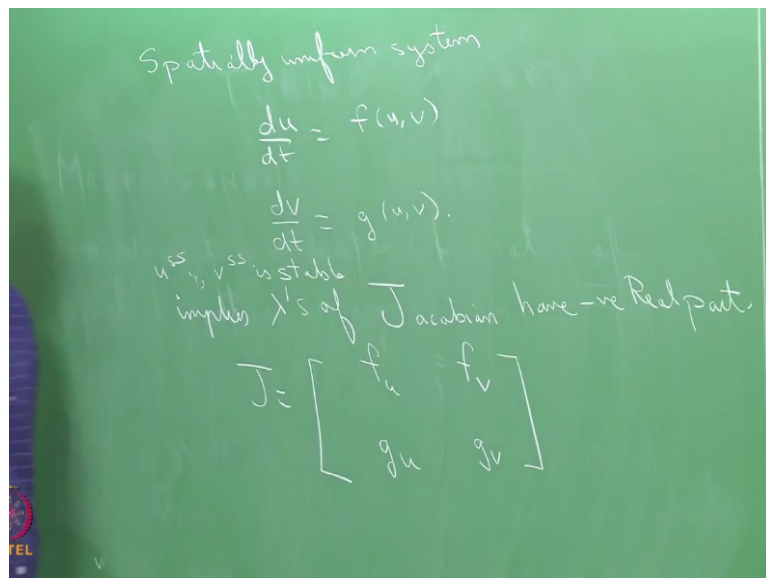 Spatially uniform system
du/dt = f(u,v)
dv/dt = g(u,v).
u^ss, v^ss is stable
implies λ's of Jacobian have -ve Real part.
J = [ f_u f_v
g_u g_v ]
TEL